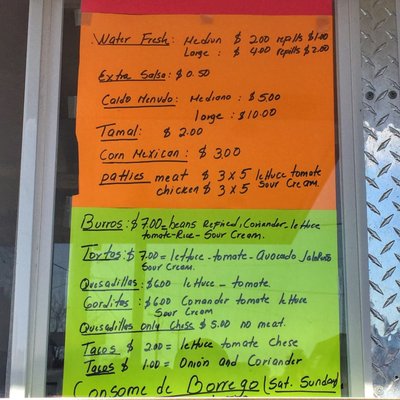 Water Fresh: Mediun $ 2.00 repills $1.00
Large: $ 4.00 repills $2.00
Extra Salsa: $ 0.50
Caldo Menudo: Mediano: $ 5.00
large: $10.00
Tamal: $ 2.00
Corn Mexican: $ 3.00
patties meat $ 3 x 5 lettuce tomate
chicken $ 3 x 5 Sour Cream.
Burros: $ 7.00 = beans Refried, Coriander lettuce
tomate-Rice-Sour Cream.
Tortas: $ 7.00 = lettuce-tomate-Avocado
Sour Cream.
Quesadillas: $ 6.00 lettuce - tomate.
Gorditas: $6.00 Coriander tomate lettuce
Sour Cream
Quesadillas only Chess $ 5.00 no meat.
Tacos $ 2.00 = lettuce tomate Chese
Tacos $ 1.00 = Onion and Coriander
Consome de Borrego (Sat. Sunday)